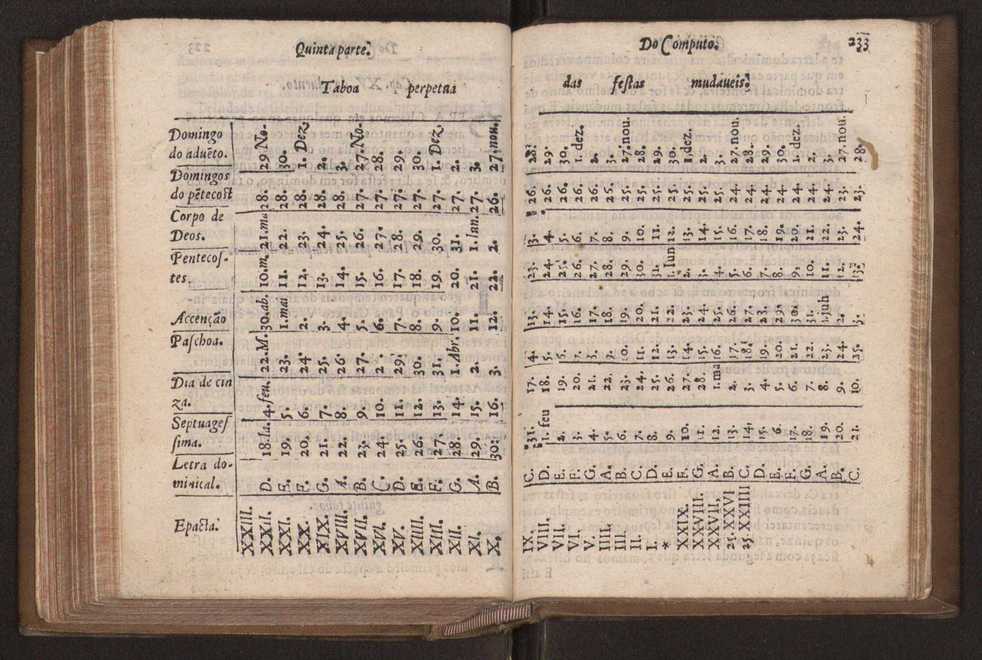 Quinta parte.
Taboa perpetua
Domingo
do aduẽto.
29.No. 30. 1. Dez. 2. 3. 27.No. 28. 29. 30. 1. Dez. 2. 3. 27.nou.
Domingos
do pẽtecost
28. 28. 28. 28. 28. 27. 27. 27. 27. 27. 27. 27. 26.
Corpo de
Deos.
22. 23. 24. 25. 26. 27. 28. 29. 30. 31. 1. Iun. 2.
Pentecos-
tes.
10.m. 11. 12. 13. 14. 15. 16. 17. 18. 19. 20. 21. 22.
Accenção
30.ab. 1.mai 2. 3. 4. 5. 6. 7. 8. 9. 10. 11. 12.
Paschoa.
22.M. 23. 24. 25. 26. 27. 2. 29. 30. 31. 1.Abr. 2. 3.
Dia de cin
za.
4.feu. 5. 6. 7. 8. 9. 10. 11. 12. 13. 14. 15. 16.
Septuages
sima.
18.Ia. 19. 20. 21. 22. 23. 24. 25. 26. 27. 28. 29. 30.
Letra do-
minical.
D. E. F. G. A. B. C. D. E. F. G. A. B.
Epacta.
XXIII. XXII. XXI. XX. XIX. XVIII. XVII. XVI. XV. XIIII. XIII. XII. XI. X.
Do Computo. 233
das festas mudaueis.
28. 29. 30. 1. dez. 2. 3. 27.nou. 28. 29. 30. 1.dez. 2. 3. 27.nou. 28. 29. 30. 1. dez. 2. 3. 27.nou. 28.
26. 26. 26. 26. 26. 26. 25. 25. 25. 25. 25. 25. 25. 24. 24. 24. 24. 24. 24. 24. 23. 23.
3. 4. 5. 6. 7. 8. 9. 10. 11. 12. 13. 14. 15. 16. 17. 18. 19. 20. 21. 22. 23. 24.
23. 24. 25. 26. 27. 28. 29. 30. 31. 1. Iun 2. 3. 4. 5. 6. 7. 8. 9. 10. 11. 12. 13.
13. 14. 15. 16. 17. 18. 19. 20. 21. 22. 23. 24. 25. 26. 27. 28. 29. 30. 31. 1.juh 2. 3.
4. 5. 6. 7. 8. 9. 10. 11. 12. 13. 14. 15. 16. 17. 18. 19. 20. 21. 22. 23. 24. 25.
17. 18. 19. 20. 21. 22. 23. 24. 25. 26. 27. 28. 1.ma 2. 3. 4. 5. 6. 7. 8. 9. 10.
31. 1. feu 2. 3. 4. 5. 6. 7. 8. 9. 10. 11. 12. 13. 14. 15. 16. 17. 18. 19. 20. 21.
C. D. E. F. G. A. B. C. D. E. F. G. A. B. C. D. E. F. G. A. B. C.
IX. VIII. VII. VI. V. IIII. III. II. I. * XXIX. XXVIII. XXVII. 25. XXVI 25. XXIIII